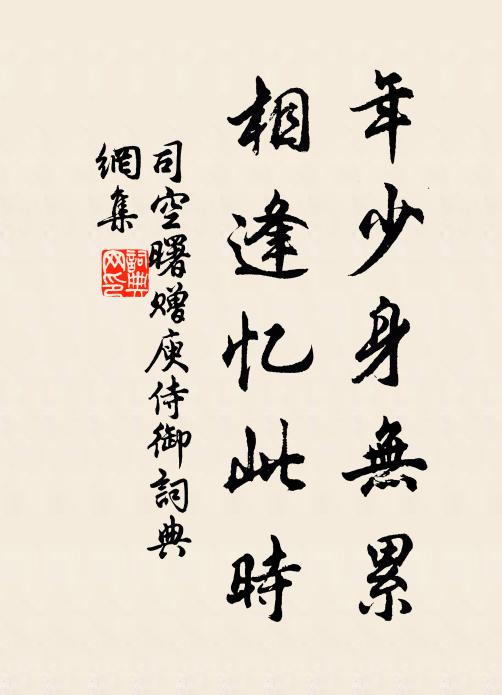 年少身無累
相逢忆此時
司空曙赠庾侍御詞典
網集
詞典
网印